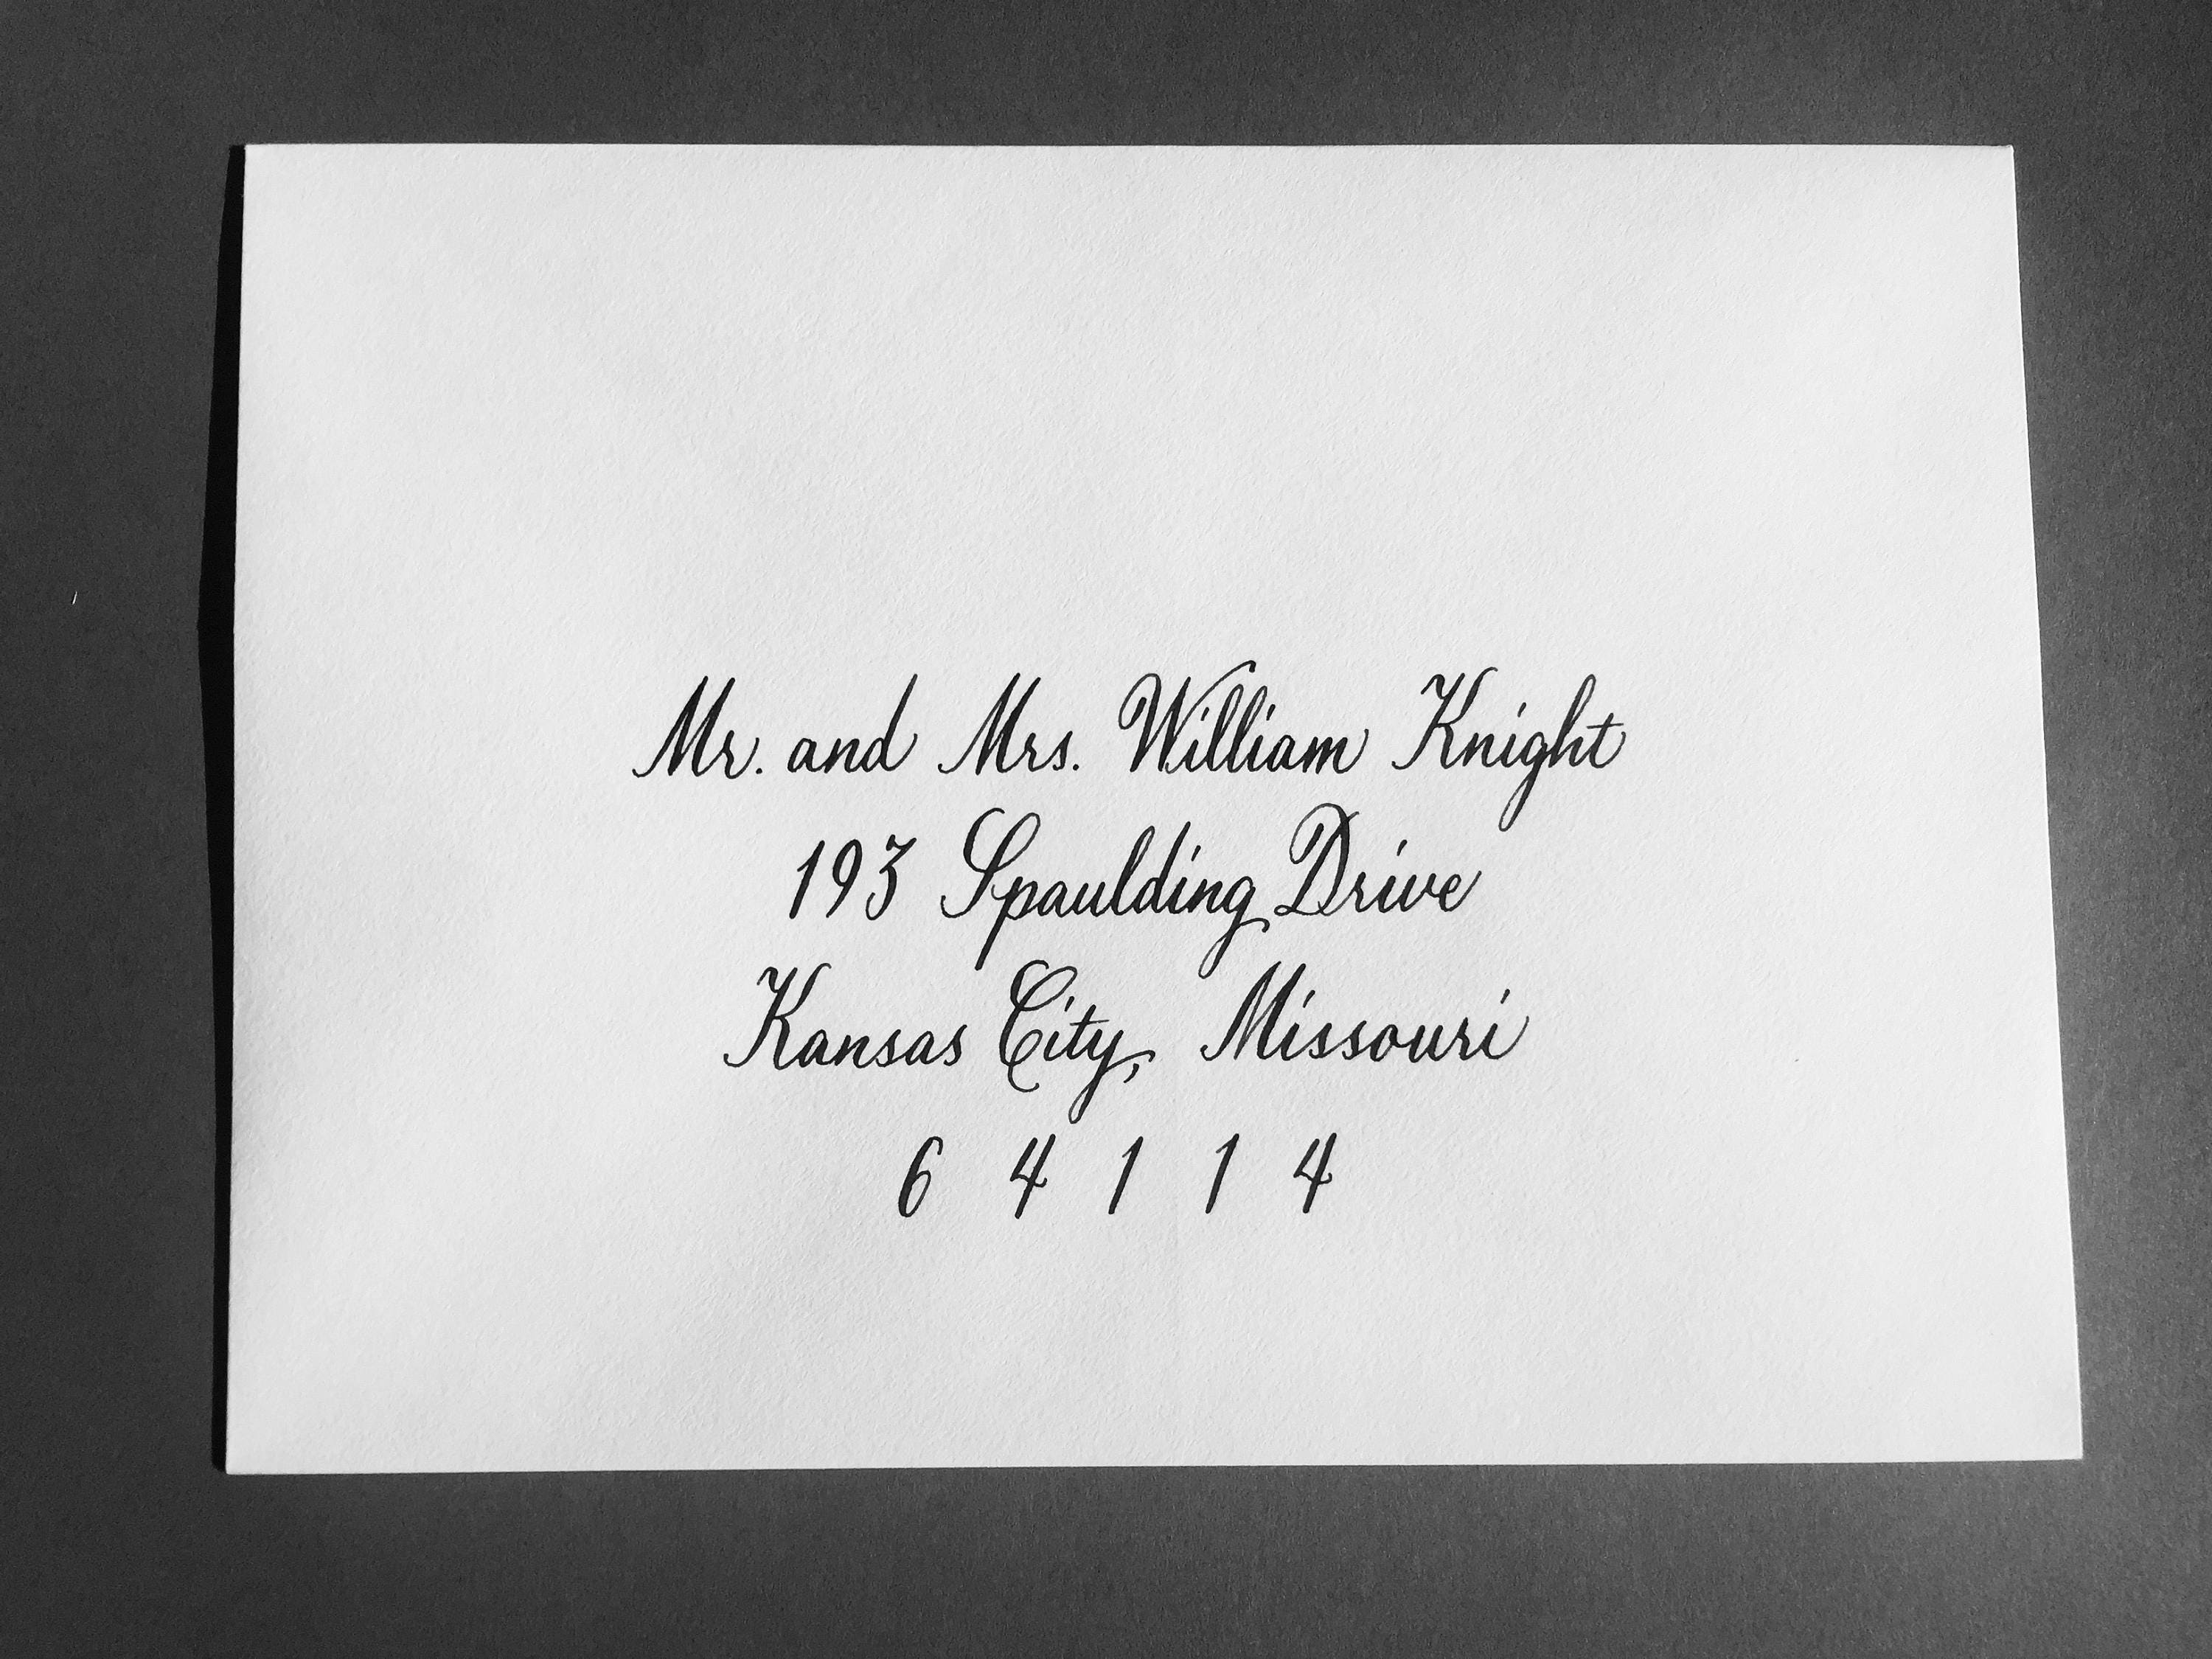 Mr. and Mrs. William Knight
193 Spaulding Drive
Kansas City, Missouri
6 4 1 1 4